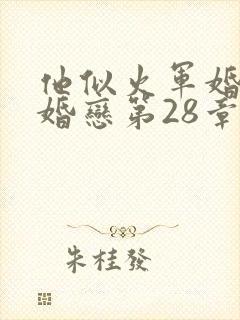 他似火軍婚
婚戀第28章
朱桂發